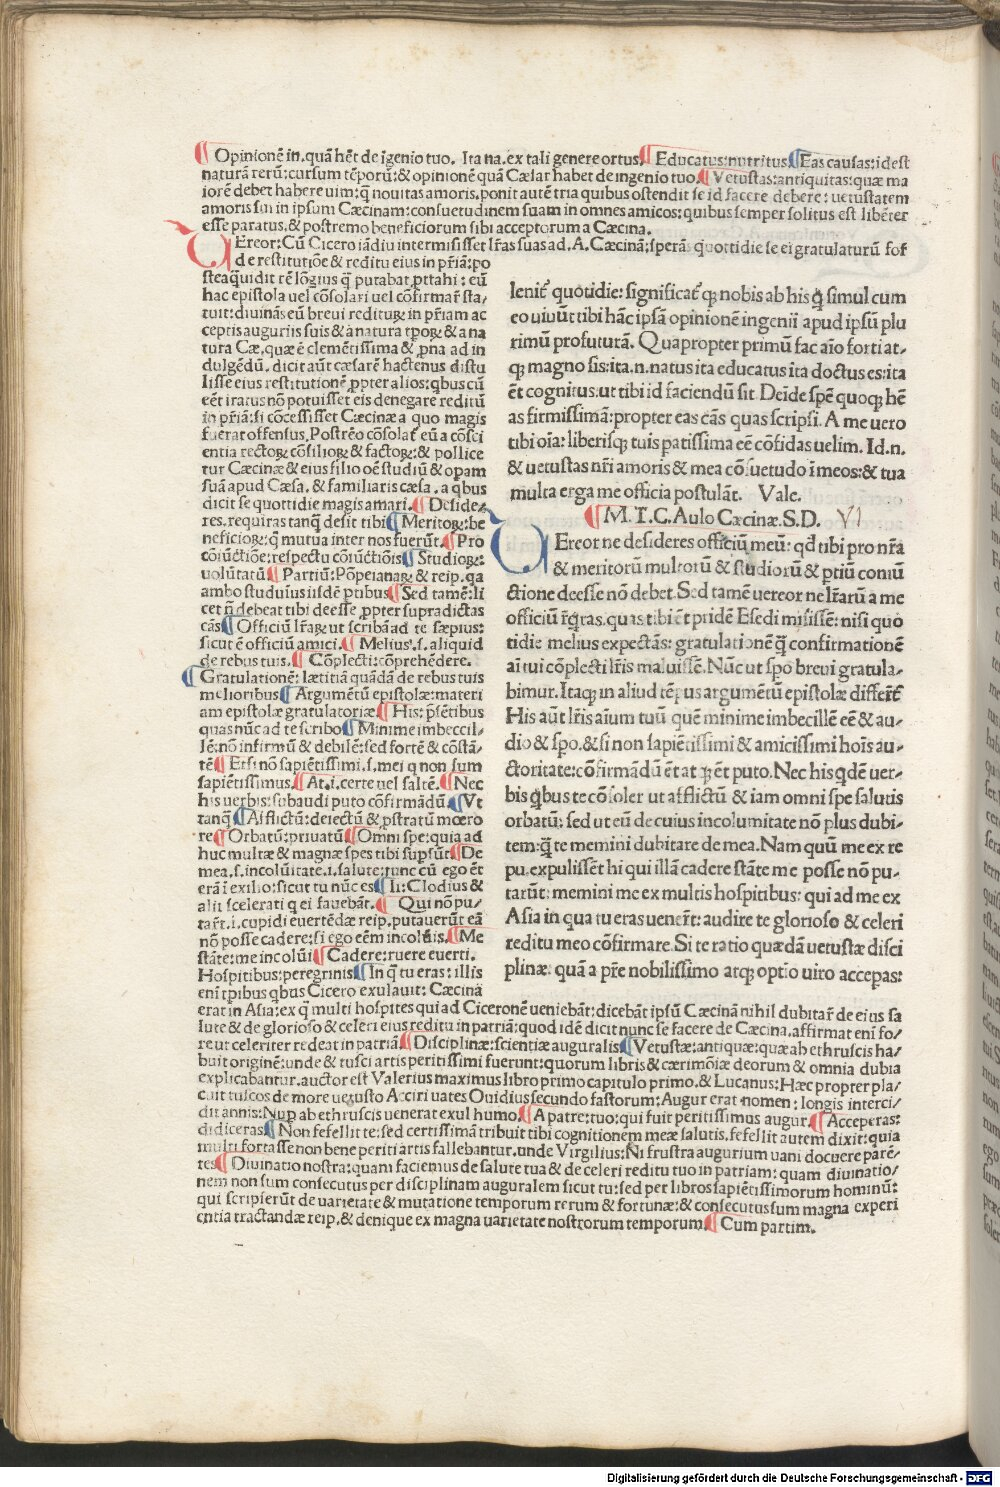 Opinionē in. quā hēt de īgenio tuo. Ita na. ex tali genere ortus. Educatus: nutritus Eas causas: id est
naturā rerū: cursum tēporū: & opinionē quā Cæsar habet de ingenio tuo. Vetustas: antiquitas: quæ ma
iorē debet habere uim: q̄ nouitas amoris. ponit autē tria quibus ostendit se id facere debere: uetustatem
amoris sui in ipsum Cæcinam: consuetudinem suam in omnes amicos: quibus semper solitus est libēter
esse paratus. & postremo beneficiorum sibi acceptorum a Cæcina.
VEreor: Cū Cicero iādiu intermisisset lr̄as suas ad. A. Cæcinā: sperās quottidie se ei gratulaturū fos
de restitutiōe & reditu eius in pr̄iā: po
stea q̄uidit rē lōgius q̄ putabat p̱ttahi: eū
hac epistola uel cōsolari uel cōfirmar̄ sta/
tuit: diuināꝭ eū breui rediturꝝ in pr̄iam ac
ceptis auguriis suis & a natura tp̱oꝝ & a na
tura Cæ. quæ ē clemētissima & p̱na ad in
dulgēdū. dicit aūt cæsarē hactenus distu
lisse eius restitutionē p̱pter alios: q̱bus cū
eēt iratus nō potuisset eis denegare reditū
in pr̄iā: si cōcessisset Cæcinæ a quo magis
fuerat offensus. Postrēo cōsolat̄ eū a cōsci
entia rectoꝝ cōsilioꝝ & factoꝝ: & pollice
tur Cæcinæ & eius filio oē studiū & opam
suā apud Cæsa. & familiaris cæsa. a q̱bus
dicit se quottidie magis amari. Desidē
res. requiras tanq̄ desit tibi Meritoꝝ: be
neficioꝝ: q̄ mutua inter nos fuerūt. Pro
cōiūctiōe: respectu cōiūctiōis Studioꝝ:
uolūtatū Partiū: Pōpeianaꝝ & reip. qa
ambo studuius iisdē p̱tibus Sed tamē: li
cet n̄ debeat tibi deesse p̱pter supradictas
cās Officiū lr̄aꝝ ut scribā ad te sæpius:
sicut ē officiū amici. Melius. s. aliquid
de rebus tuis. Cōplecti: cōprehēdere.
Gratulationē: lætitiā quādā de rebus tuis
melioribus Argumētū epistolæ: materi
am epistolæ gratulatoriæ His: p̄sētibus
quas nūc ad te scribo Minime imbeccil/
lē: nō infirmū & debilē: sed fortē & cōstā/
tē Etsi nō sapiētissimi. s. mei q non sum
sapiētissimus. At. i. certe uel saltē. Nec
his uerbis: subaudi puto cōfirmādū. Vt
tanq̄ Afflictū: deiectū & p̱stratū mœro
re Orbatū: priuatū Omni spe: quia ad
huc multæ & magnæ spes tibi sup̱sūt De
mea. s. incolūitate. i. salute: tunc cū ego ēt
erā ī exilio: sicut tu nūc es Ii: Clodius &
alii scelerati q ei fauebāt. Qui nō pu/
tar̄t. i. cupidi euertēdæ reip. putauerūt eā
nō posse cadere: si ego eēm incolūis. Me
stāte: me incolūi Cadere: ruere euerti.
Hospitibus: peregrinis In q̄ tu eras: illis
eni tp̱ibus q̱bus Cicero exulauit: Cæcinā
erat in Asia: ex q̄ multi hospites qui ad Ciceronē ueniebāt: dicebāt ipsū Cæcinā nihil dubitar̄ de eius sa
lute & de glorioso & celeri eius reditu in patriā: quod idē dicit nunc se facere de Cæcina. affirmat enī fo/
re ut celeriter redeat in patriā Disciplinæ: scientiæ auguralis Vetustæ: antiquæ: quæ ab ethruscis ha/
buit originē: unde & tusci artis peritissimi fuerunt: quorum libris & cærimōiæ deorum & omnia dubia
explicabantur. auctor est Valerius maximus libro primo capitulo primo. & Lucanus: Hæc propter pla/
cuit tuscos de more uetusto Acciri uates Ouidius secundo fastorum: Augur erat nomen: longis interci/
dit annis: Nup ab ethruscis uenerat exul humo. A patre: tuo: qui fuit peritissimus augur. Acceperas:
didiceras Non fefellit te: sed certissimā tribuit tibi cognitionem meæ salutis. fefellit autem dixit: quia
multi fortasse non bene periti artis fallebantur. unde Virgilius: Ni frustra augurium uani docuere parē/
tes Diuinatio nostra: quam faciemus de salute tua & de celeri reditu tuo in patriam: quam diuinatio/
nem non sum consecutus per disciplinam auguralem sicut tu: sed per libros sapiētissimorum hominū:
qui scripserūt de uarietate & mutatione temporum rerum & fortunæ: & consecutus sum magna experi
entia tractandæ reip. & denique ex magna uarietate nostrorum temporum. Cum partim.
lenit̄ quotidie: significat̄ qꝫ nobis ab his q̱ simul cum
eo uiuūt tibi hāc ipsā opinionē ingenii apud ipsū plu
rimū profuturā. Quapropter primū fac aīo forti at-
qꝫ magno sis: ita. n. natus ita educatus ita doctus es: ita
ēt cognitus. ut tibi id faciendū sit. Deīde spē quoqꝫ hē
as firmissimā: propter eas cās quas scripsi. A me uero
tibi oīa: liberisqꝫ tuis patissima eē cōfidas uelim. Id. n.
& uetustas nr̄i amoris & mea cōsuetudo ī meos: & tua
multa erga me officia postulāt. Vale.
M. T. C. Aulo Cæcinæ. S. D. VI
VEreor ne desideres officiū meū: qd̄ tibi pro nr̄a
& meritorū multorū & studiorū & p̱tiū coniū
ctione deesse nō debet. Sed tamē uereor ne lr̄arū a me
officiū r̄q̱ras. quas tibi ēt pridē & sedi misissē: nisi quo
tidie melius expectās: gratulationē q̄ confirmationē
ai tui cōplecti lr̄is maluissē. Nūc ut spo breui gratula-
bimur. Itaqꝫ in aliud tēpus argumētū epistolæ differt̄
His aūt lr̄is aīum tuū quē minime imbecillē eē & au-
dio & spo. & si non sapiētissimi & amicissimi hoīs au-
ctoritate: cōfirmādū ēt at qꝫ ēt puto. Nec his q̱dē uer-
bis q̱bus te cōsoler ut afflictū & iam omni spe salutis
orbatū: sed ut eū de cuius incolumitate nō plus dubi-
tem: q̄ te memini dubitare de mea. Nam quū me ex re
pu. expulissēt hi qui illā cadere stāte me posse nō pu-
tarūt: memini me ex multis hospitibus: qui ad me ex
Asia in qua tu eras uener̄t: audire te glorioso & celeri
reditu meo cōfirmare. Si te ratio quædā uetustæ disci
plinæ. quā a pr̄e nobilissimo atqꝫ optīo uiro accepas:
Digitalisierung gefördert durch die Deutsche Forschungsgemeinschaft - DFG